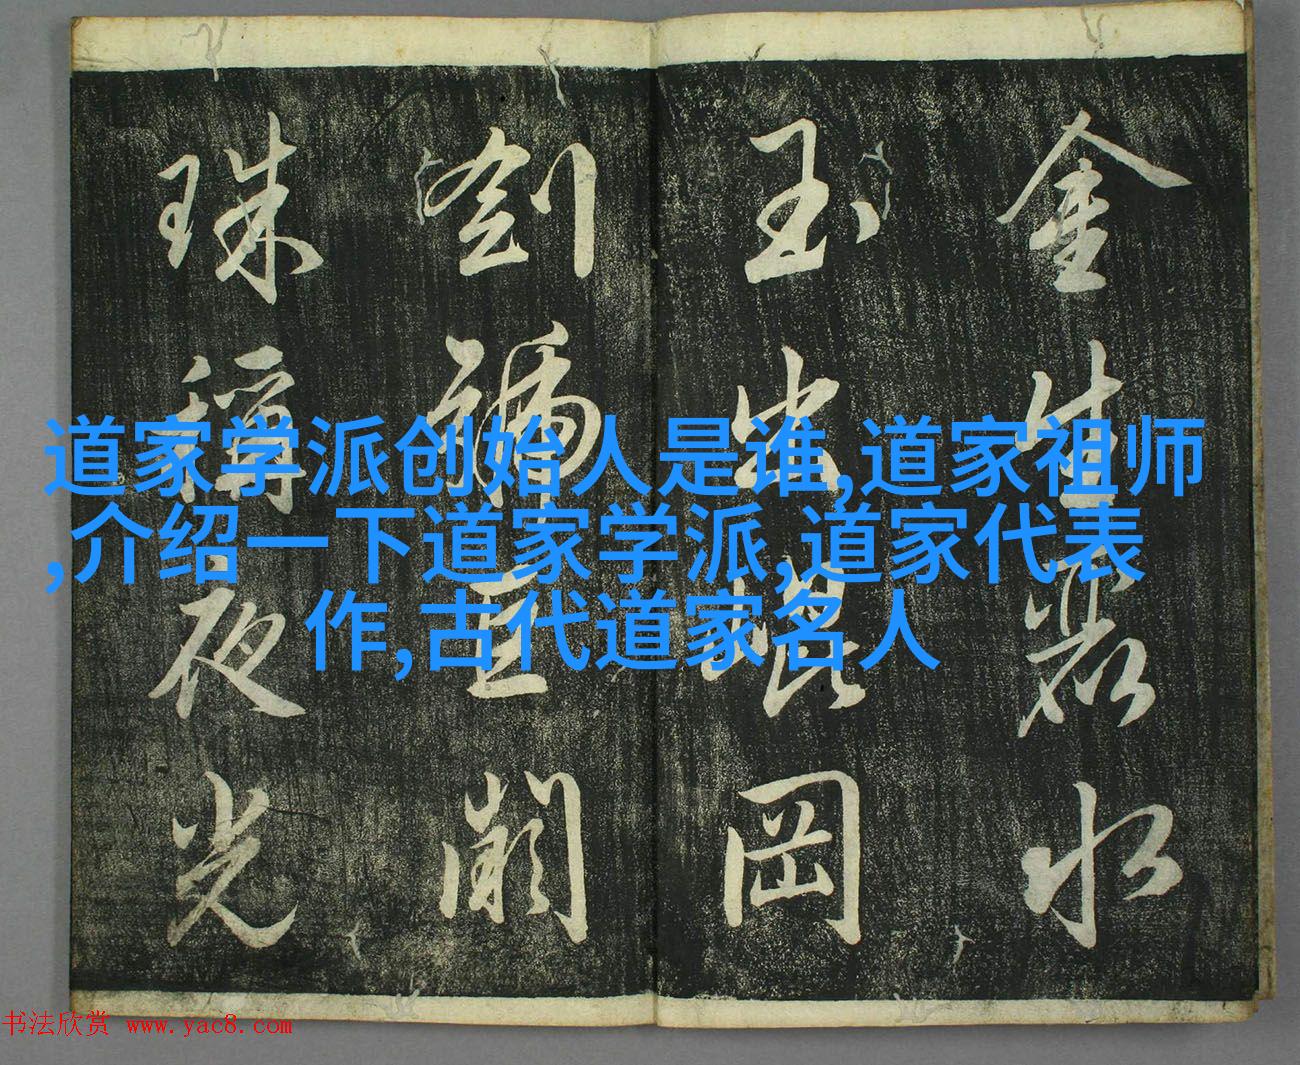 金生麗水
玉出崐岡
劍號巨闕
珠稱夜光
道家学派创始人是谁,道家祖师
,介绍一下道家学派,道家代表
作,古代道家名人
书法欣赏 www.yac8.com